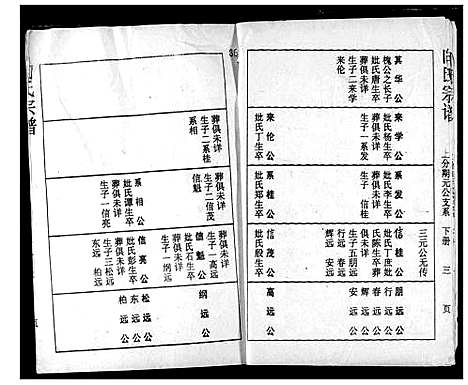 宗谱
上分期元公支系
下册
三
页
其华公
槐公之长子
妣氏唐生卒
葬俱未详
生子二来学
来伦
来学公
妣氏杨生卒
葬俱未详
生子一系发
来伦公
妣氏丁生卒
葬俱未详
生子二系桂
系相
系发公
妣氏李生卒
葬俱未详
生子一信桂
系桂公
妣氏郑生卒
葬俱未详
生子二信茂
信魁
系相公
妣氏谭生卒
葬俱未详
生子一信亮
三元公无传
信桂公
妣氏丁庶妣
氏陈生卒葬
俱未详
生子五朋远
行远 春远
辉远 安远
信茂公
妣氏殷生卒
葬俱未详
生子一高远
信魁公
妣氏石生卒
葬俱未详
生子一纲远
信亮公
妣氏彭生卒
葬俱未详
生子三松远
东远 柏远
朋远公
行远公
春远公
辉远公
安远公
高远公
纲远公
松远公
东远公
柏远公
氏宗谱
页